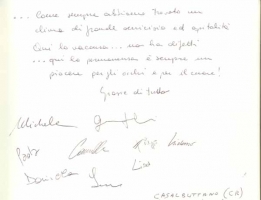 ... Come sempre abbiamo trovato un
clima di grande amicizia ed ospitalità
la vacanza... non ha difetti
... qui la permanenza è sempre un
piacere per gli occhi e per il cuore!
Grazie di tutto
Michela
Camilla
Lisa
Daniela
CASALBUTTANO (CR)